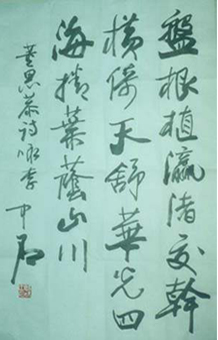 盤根植瀛渚交幹
橫倚天舒華光四
海捲葉蔭山川
董思恭詩咏李